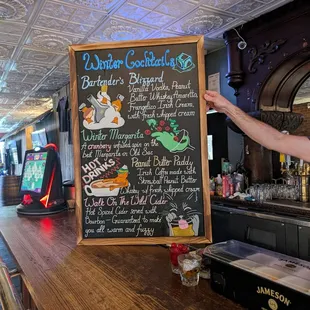 Winter Cocktails
Bartender's Blizzard
Vanilla Vodka, Peanut
Butter Whiskey, Amaretto
Frangelico, Irish Cream
with fresh whipped cream
Winter Margarita
A cranberry infused spin on the
best Margarita in Old Sac
HOT
DRINKS
Peanut Butter Paddy
Irish Coffee made with
Skrewball Peanut Butter
Whiskey w/ Fresh whipped cream
Walk On The Wild Cider
Hot Spiced Cider served with
Bourbon - Guaranteed to make
you all warm and fuzzy
JAMESON